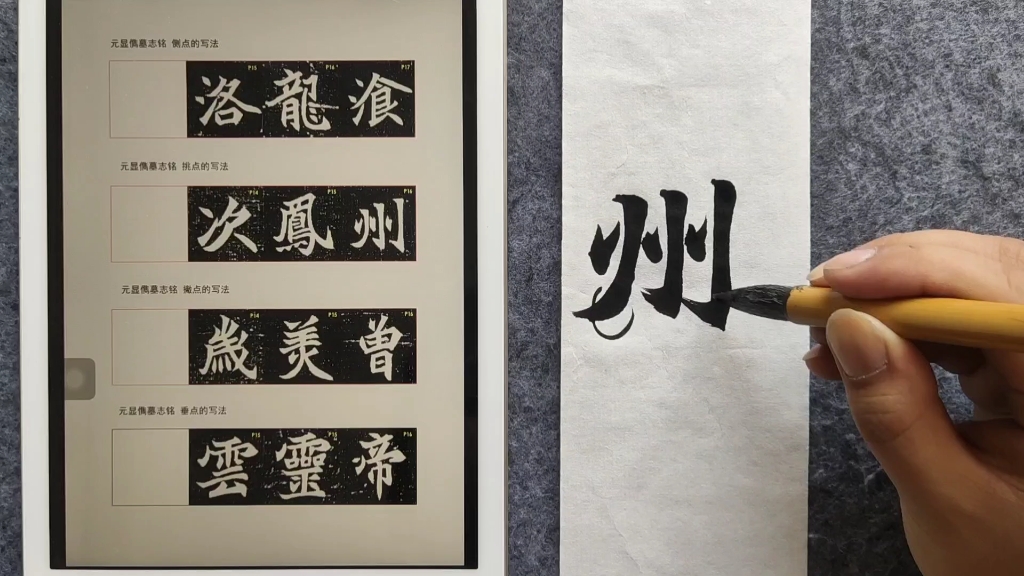 元显儁墓志铭 侧点的写法
P15 P16 P17
洛 龍 飡
元显儁墓志铭 挑点的写法
P14 P15 P16
次 鳳 州
元显儁墓志铭 撇点的写法
P14 P15 P16
歲 羙 曽
元显儁墓志铭 垂点的写法
P15 P15 P16
雲 靈 帝
州